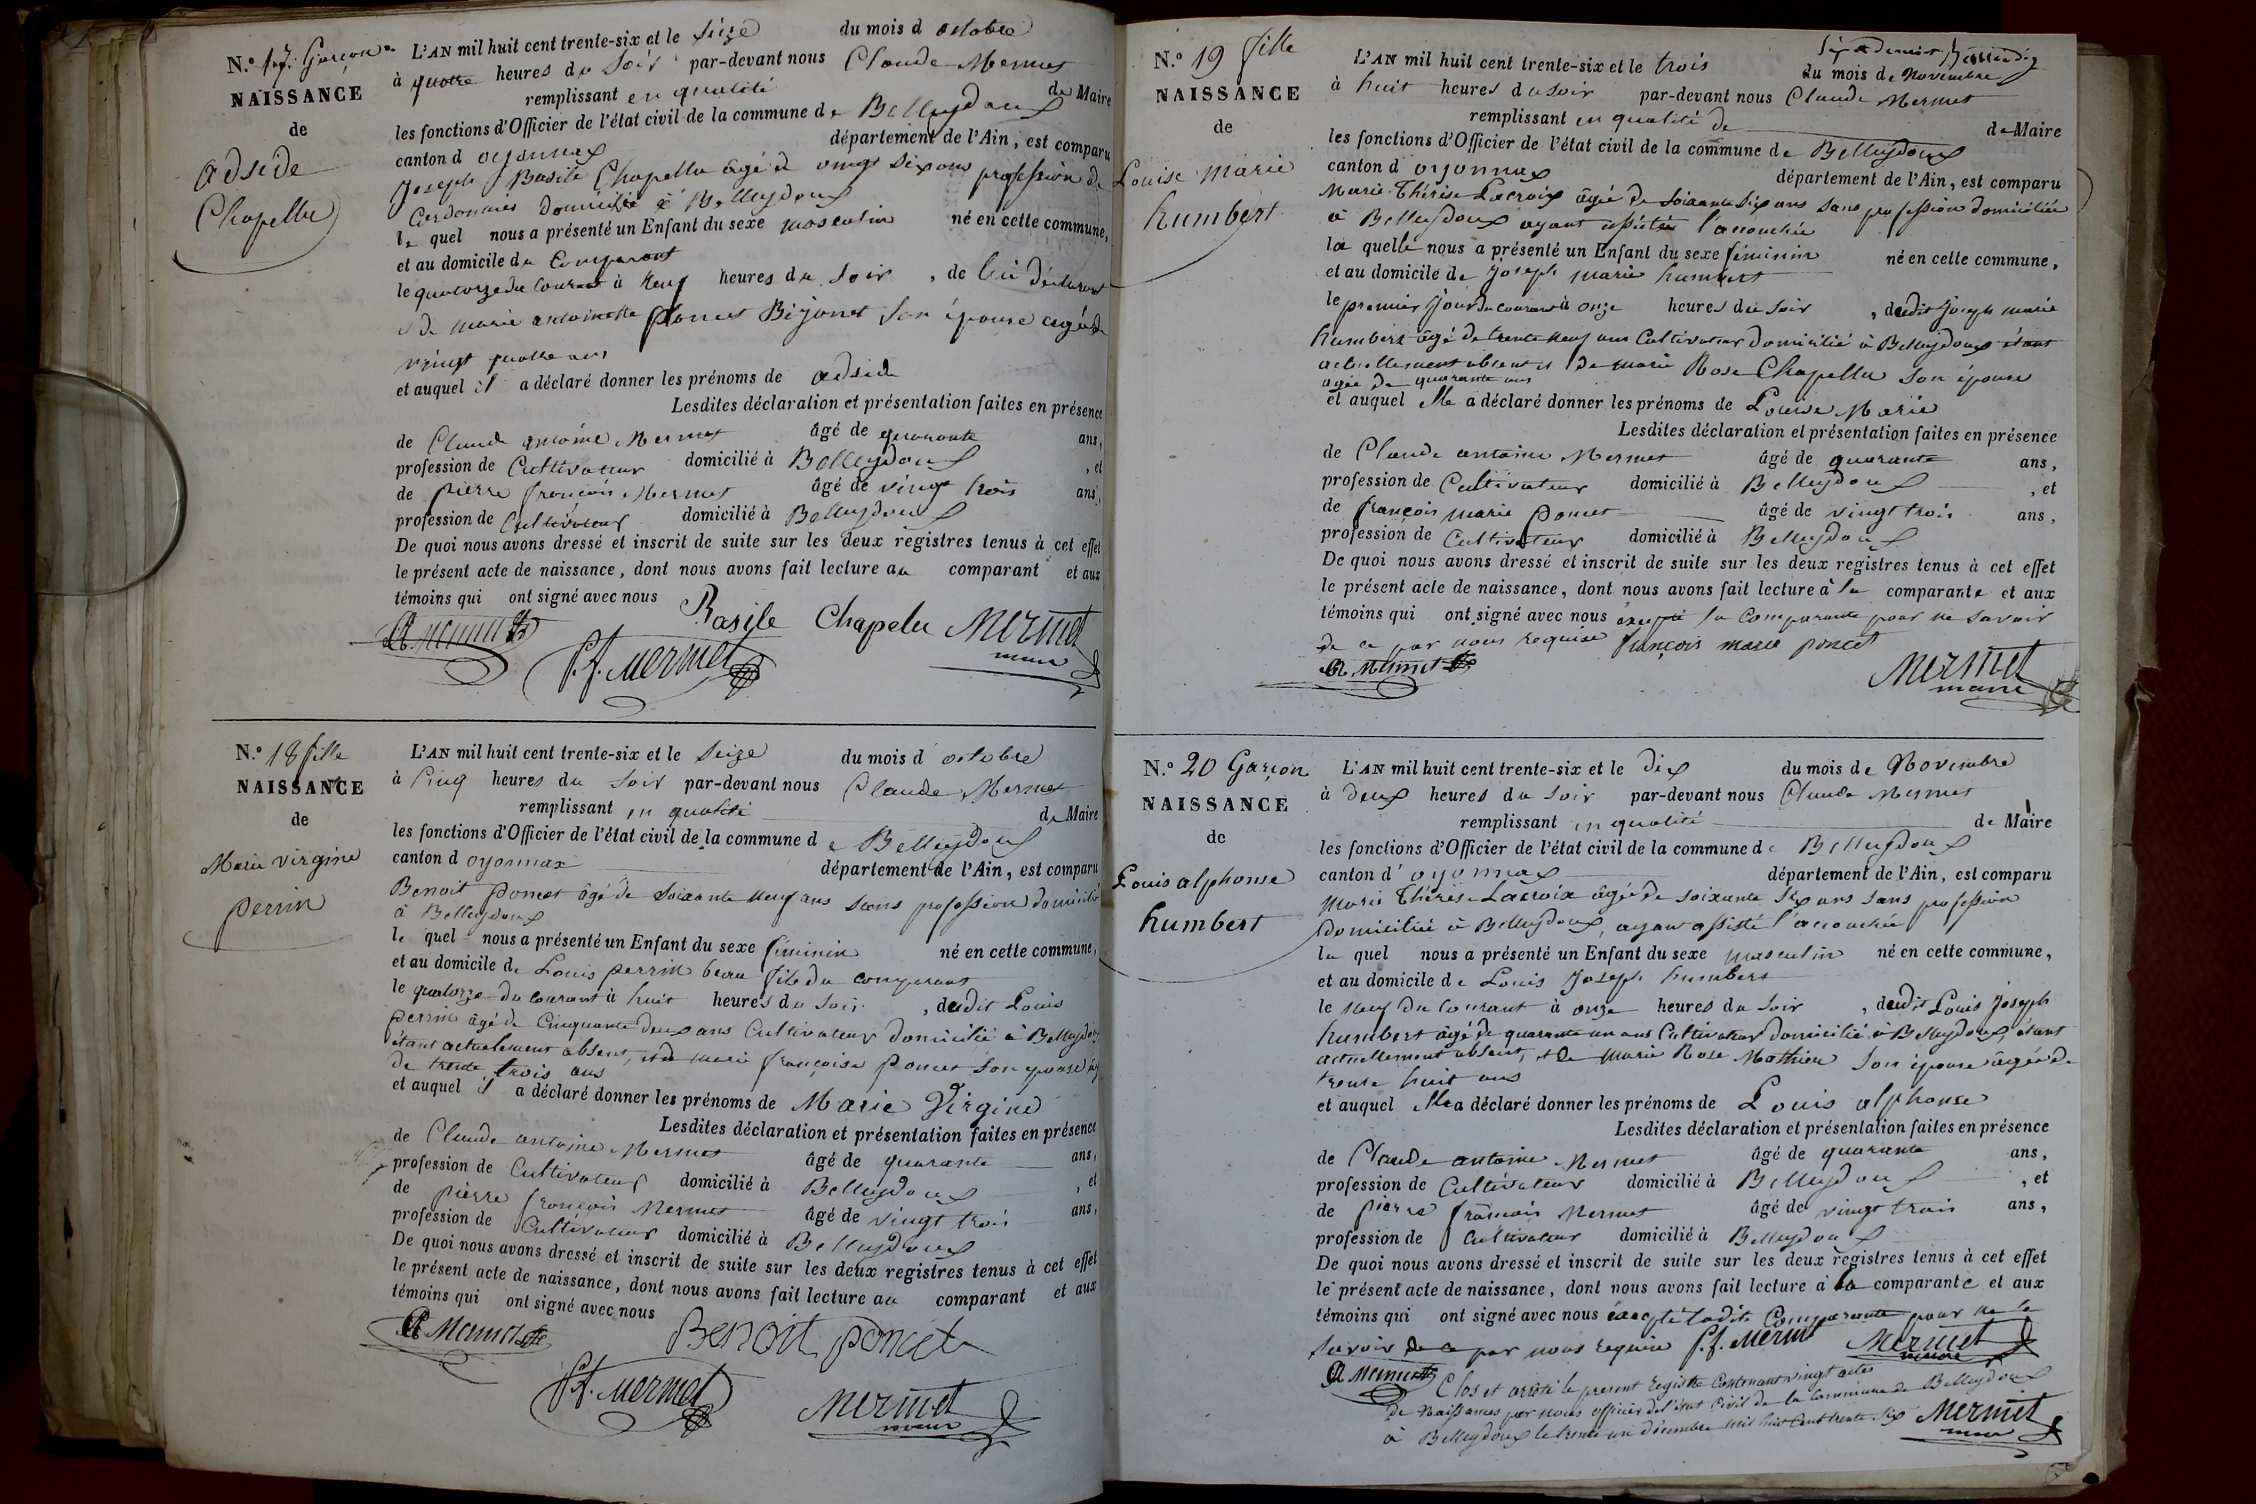 N.º 17. Garçon
NAISSANCE
de
adside
Chapellu
L'AN mil huit cent trente-six et le seize du mois d octobre
à quatre heures du soir par-devant nous Claude Mermet
remplissant en qualité de Maire
les fonctions d'Officier de l'état civil de la commune de Belleydoux
canton d oyonnax département de l'Ain, est comparu
Joseph Basile Chapellu âgé de vingt six ans profession de
Cordonnier domicilié à Belleydoux
le quel nous a présenté un Enfant du sexe masculin né en cette commune,
et au domicile du Comparant
le quatorze du Courant à neuf heures du soir, de lui déclarant
et de marie antoinette poncet Bijonet son épouse agée de
vingt quatre ans
et auquel il a déclaré donner les prénoms de adside
Lesdites déclaration et présentation faites en présence
de Claude antoine Mermet âgé de quarante ans,
profession de Cultivateur domicilié à Belleydoux, et
de pierre françois Mermet âgé de vingt trois ans,
profession de Cultivateur domicilié à Belleydoux
De quoi nous avons dressé et inscrit de suite sur les deux registres tenus à cet effet
le présent acte de naissance, dont nous avons fait lecture au comparant et aux
témoins qui ont signé avec nous
Basile Chapelu Mermet
maire
P.f. Mermet
N.º 18 fille
NAISSANCE
de
Marie virginie
perrin
L'AN mil huit cent trente-six et le seize du mois d octobre
à Cinq heures du soir par-devant nous Claude Mermet
remplissant en qualité de Maire
les fonctions d'Officier de l'état civil de la commune de Belleydoux
canton d oyonnax département de l'Ain, est comparu
Benoit poncet âgé de soixante neuf ans sans profession domicilié
à Belleydoux
le quel nous a présenté un Enfant du sexe féminin né en cette commune,
et au domicile de Louis perrin beau fils du comparant
le quatorze du courant à huit heures du soir, dudit Louis
perrin âgé de Cinquante deux ans Cultivateur domicilié à Belleydoux
étant actuellement absent, et de marie françoise poncet son epouse
de trente trois ans
et auquel il a déclaré donner les prénoms de Marie Virginie
Lesdites déclaration et présentation faites en présence
de Claude antoine Mermet âgé de quarante ans,
profession de Cultivateur domicilié à Belleydoux, et
de pierre françois Mermet âgé de vingt trois ans,
profession de Cultivateur domicilié à Belleydoux
De quoi nous avons dressé et inscrit de suite sur les deux registres tenus à cet effet
le présent acte de naissance, dont nous avons fait lecture au comparant et aux
témoins qui ont signé avec nous
Benoit poncet
P.f. Mermet Mermet
maire
N.º 19 fille
NAISSANCE
de
Louise Marie
humbert
L'AN mil huit cent trente-six et le trois du mois de novembre
à huit heures du soir par-devant nous Claude Mermet
remplissant en qualité de de Maire
les fonctions d'Officier de l'état civil de la commune de Belleydoux
canton d oyonnax département de l'Ain, est comparu
Marie Thérèse Lacroix âgée de soixante six ans sans profession domiciliée
à Belleydoux ayant assistée l'accouchée
la quelle nous a présenté un Enfant du sexe féminin né en cette commune,
et au domicile de Joseph marie humbert
le premier jour du courant à onze heures du soir, dudit Joseph marie
humbert âgé de trente neuf ans Cultivateur domicilié à Belleydoux étant
actuellement absent et de marie Rose Chapellu son épouse
agée de quarante ans
et auquel elle a déclaré donner les prénoms de Louise Marie
Lesdites déclaration et présentation faites en présence
de Claude antoine Mermet âgé de quarante ans,
profession de Cultivateur domicilié à Belleydoux, et
de françois marie poncet âgé de vingt trois ans,
profession de Cultivateur domicilié à Belleydoux
De quoi nous avons dressé et inscrit de suite sur les deux registres tenus à cet effet
le présent acte de naissance, dont nous avons fait lecture à la comparante et aux
témoins qui ont signé avec nous excepté la Comparante pour ne savoir
de ce par nous requise françois marie poncet
Mermet
maire
N.º 20 Garçon
NAISSANCE
de
Louis alphonse
humbert
L'AN mil huit cent trente-six et le dix du mois de Novembre
à deux heures du soir par-devant nous Claude Mermet
remplissant en qualité de Maire
les fonctions d'Officier de l'état civil de la commune de Belleydoux
canton d'oyonnax département de l'Ain, est comparu
Marie Thérèse Lacroix âgée de soixante six ans sans profession
domiciliée à Belleydoux, ayant assisté l'accouchée
la quel nous a présenté un Enfant du sexe masculin né en cette commune,
et au domicile de Louis Joseph humbert
le neuf du Courant à onze heures du soir, dudit Louis Joseph
humbert âgé de quarante un ans Cultivateur domicilié à Belleydoux, étant
actuellement absent, et de Marie Rose Mathieu son épouse âgée de
trente huit ans
et auquel elle a déclaré donner les prénoms de Louis alphonse
Lesdites déclaration et présentation faites en présence
de Claude antoine Mermet âgé de quarante ans,
profession de Cultivateur domicilié à Belleydoux, et
de pierre françois Mermet âgé de vingt trois ans,
profession de Cultivateur domicilié à Belleydoux
De quoi nous avons dressé et inscrit de suite sur les deux registres tenus à cet effet
le présent acte de naissance, dont nous avons fait lecture à la comparante et aux
témoins qui ont signé avec nous excepté ladite Comparante pour ne le
savoir de ce par nous requise P.f. Mermet Mermet
maire
Clos et arrêté le present Registre Contenant vingt actes
de Naissances par nous officier de l'état Civil de la Commune de Belleydoux
à Belleydoux le trente un décembre mil huit cent trente six Mermet
maire